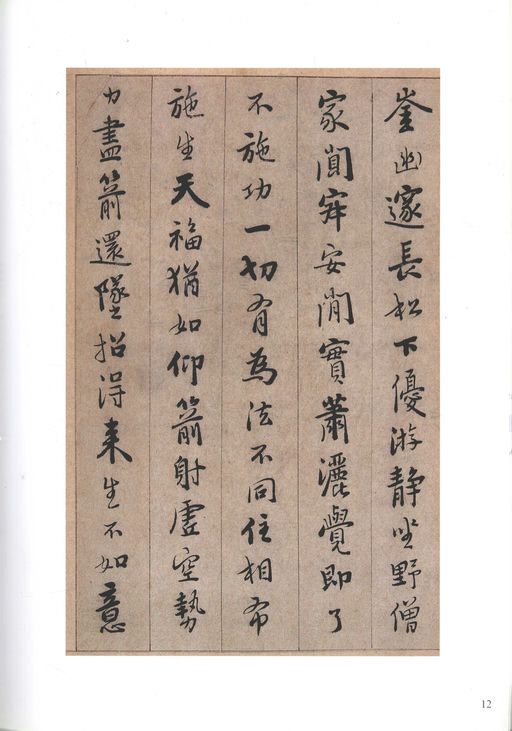 崟幽邃長松下優游靜坐野僧
家闃寂安閑實蕭灑覺即了
不施功一切有為法不同住相布
施生天福猶如仰箭射虛空勢
力盡箭還墜招得來生不如意
12